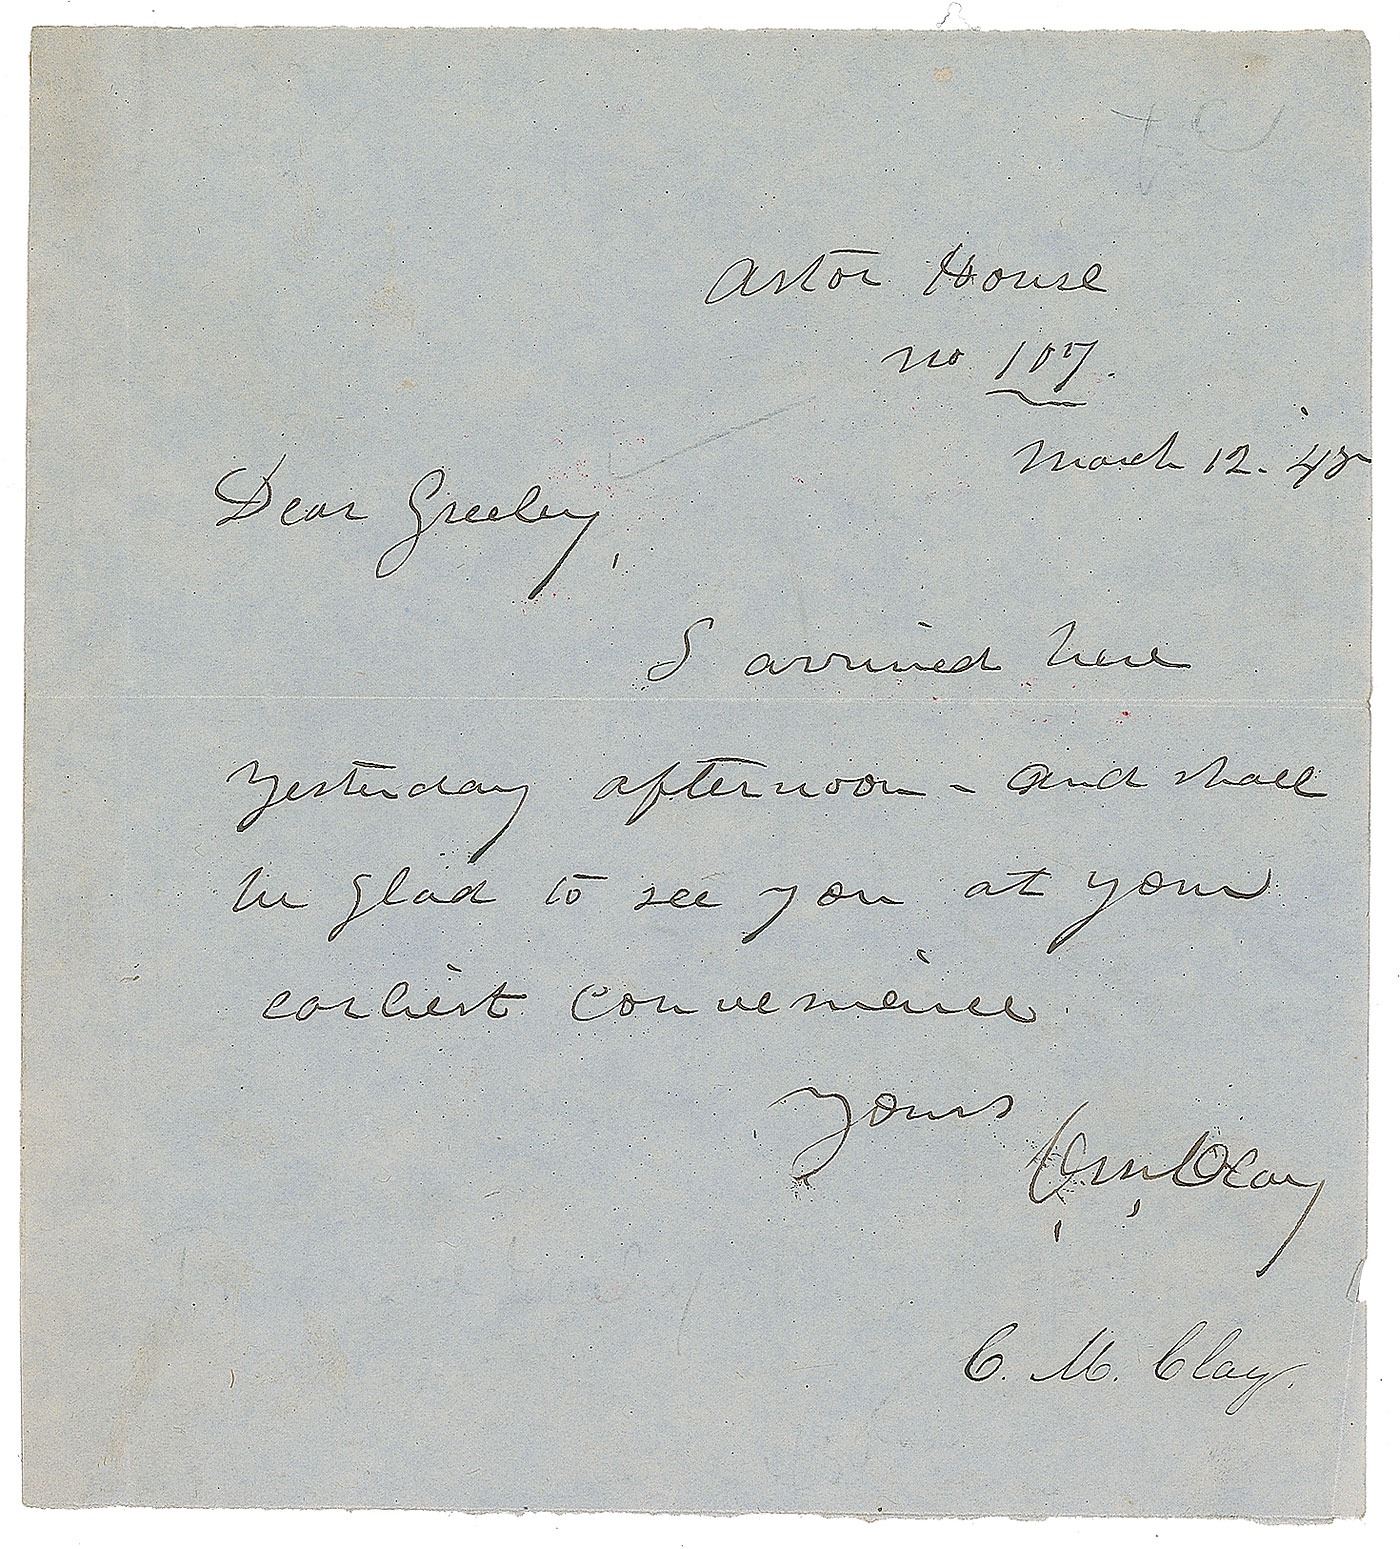 Astor House
No 107.
March 12. '48
Dear Greeley,
I arrived here
yesterday afternoon - and shall
be glad to see you at your
earliest convenience.
Yours
C. M. Clay
C. M. Clay.